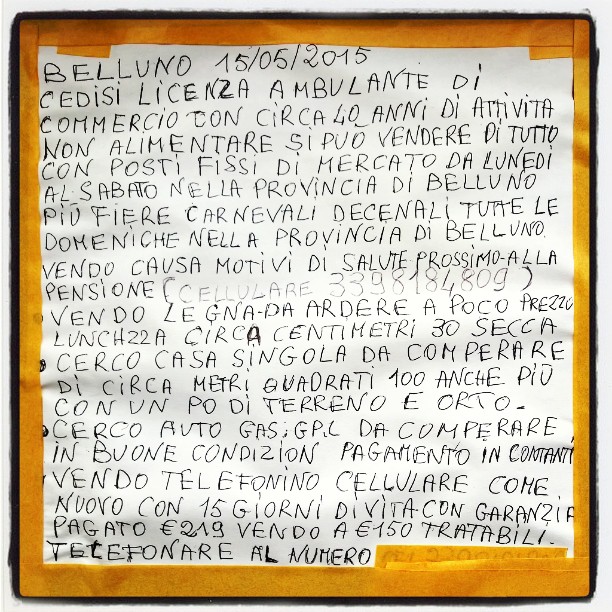 BELLUNO 15/05/2015
CEDISI LICENZA AMBULANTE DI
COMMERCIO CON CIRCA 40 ANNI DI ATTIVITA
NON ALIMENTARE SI PUÒ VENDERE DI TUTTO
CON POSTI FISSI DI MERCATO DA LUNEDI
AL SABATO NELLA PROVINCIA DI BELLUNO
PIÙ FIERE CARNEVALI DECENALI TUTTE LE
DOMENICHE NELLA PROVINCIA DI BELLUNO.
VENDO CAUSA MOTIVI DI SALUTE-PROSSIMO-ALLA
PENSIONE (CELLULARE 3398184809)
VENDO LEGNA-DA ARDERE A POCO PREZZO
LUNCHZZA CIRCA CENTIMETRI 30 SECCA
• CERCO CASA SINGOLA DA COMPERARE
DI CIRCA METRI QUADRATI 100 ANCHE PIÙ
CON UN PO DI TERRENO E ORTO-
• CERCO AUTO GAS; GPL DA COMPERARE
IN BUONE CONDIZION PAGAMENTO IN CONTANTI
VENDO TELEFONINO CELLULARE COME
NUOVO CON 15 GIORNI DI VITA CON GARANZIA
PAGATO €219 VENDO A €150 TRATABILI.
TELEFONARE AL NUMERO